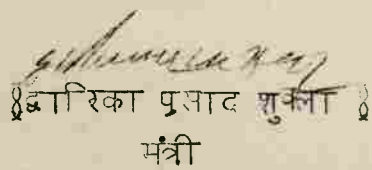 (द्वारिका प्रसाद शुक्ला)
मंत्री